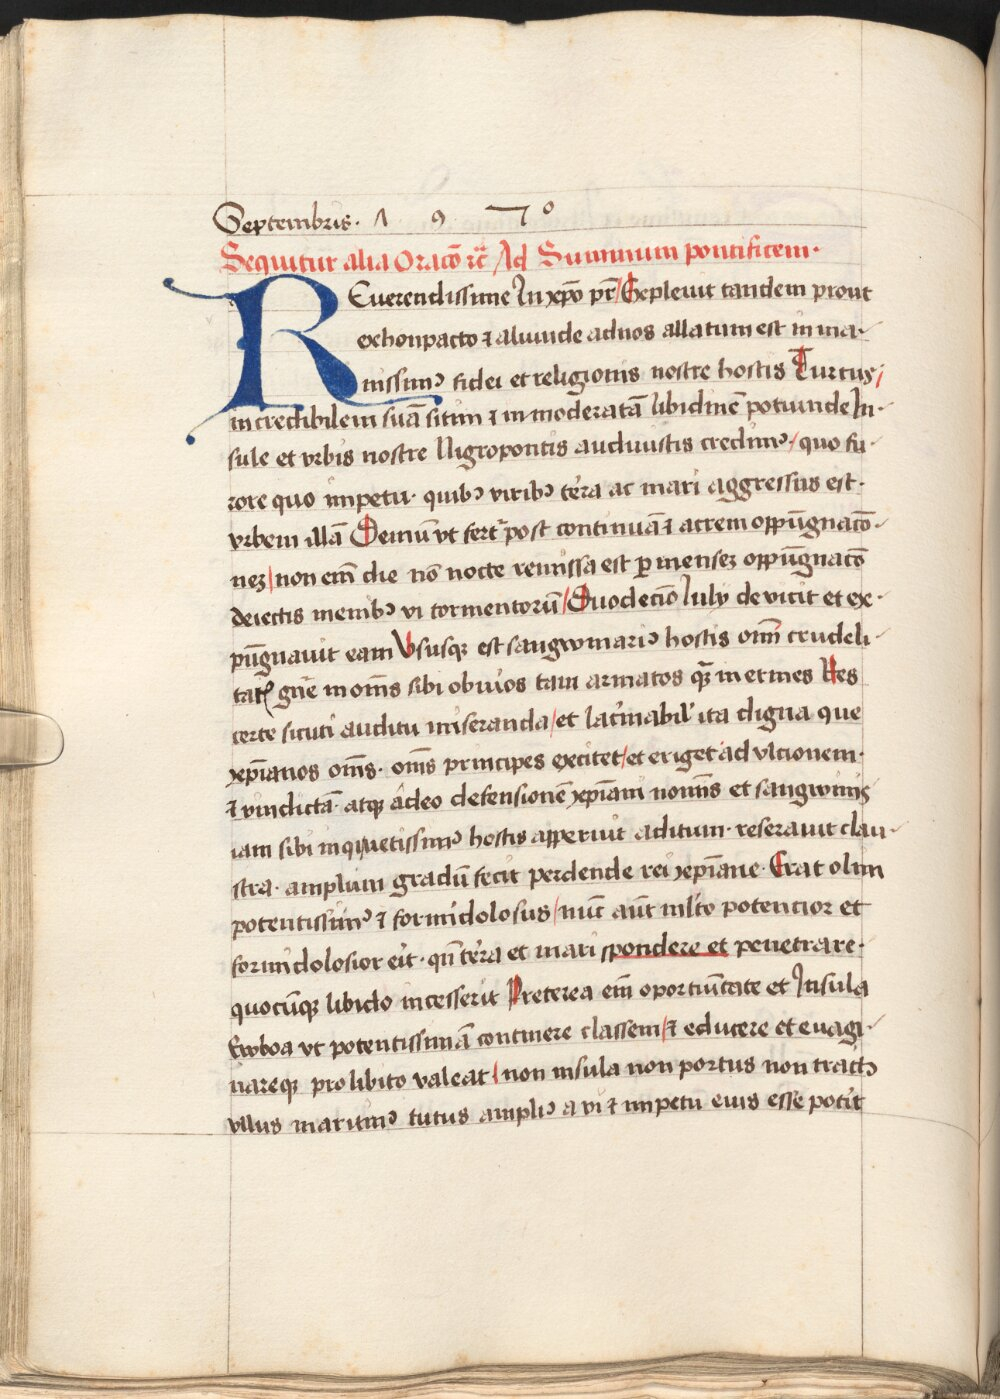 Septembris · 1 9 70
Sequitur alia Oracō rc̄ Ad Summum pontificem ·
REuerendissime In xp̄o pr̄ / Expleuit tandem prout
exhonpacto ⁊ aliunde ad nos allatum est inma-
nissimꝰ fidei et religionis nostre hostis Turcus /
incredibilem suā sitim ⁊ inmoderatā libidinē potiunde In-
sule et vrbis nostre Nigropontis audiuistis credimꝰ / quo fu-
rore quo impetu · quibꝰ viribꝰ te᷑ra ac mari aggressus est ·
vrbem illā Demū vt fert᷑ post continuā ⁊ acrem oppūgnacō-
nez / non em̄ die nō nocte remissa est ꝑ mensez oppūgnacō
deiectis menibꝰ vi tormentorū / Duodecīo Iuly deuicit et ex-
pūgnauit eam Vsusqꝫ est sangwinariꝰ hostis om̄i crudeli-
tatꝭ gn̄e in om̄s sibi obuios tam armatos qᷓꝫ inermes Res
certe sicuti auditu miseranda / et lac̓mabil' ita digna que
xp̄ianos om̄s · om̄s principes excitet / et eriget ad vlcionem ·
⁊ vindictā · atqꝫ adeo defensionē xp̄iani nom̄is et sangwinis
iam sibi inquietissimꝰ hostis apperuit aditum · reserauit clau-
stra · amplum gradū fecit perdende rei xp̄iane · Erat olim
potentissimꝰ ⁊ formidolosus / nūc aūt ml̓to potencior et
formidolosior erit · qn̄ te᷑ra et mari spondere et penetrare ·
quocūqꝫ libido incesserit Preterea em̄ oportūitate et Insula
Ewboa vt potentissimā continere classem / ⁊ educere et euagi-
nareqꝫ pro libito valeat / non insula non portus non tractꝰ
vllus maritimꝰ tutus ampliꝰ a vi ⁊ impetu eius esse poterit